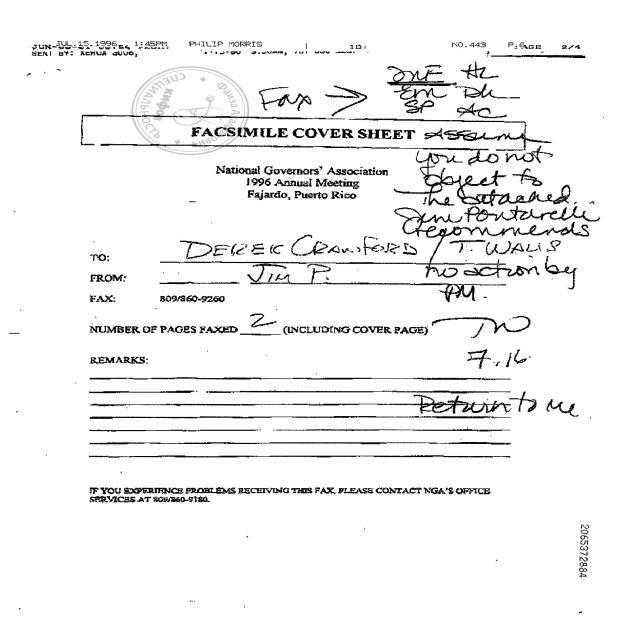 JUL.15.1996 1:45PM PHILIP MORRIS NO.443 P.6 2/4
SENT BY: XEROX
Fax →
JMF HL
EM DL
SP AC
СПЕЦИАЛЬНОСТЬ
FACSIMILE COVER SHEET Assume
you do not
object to
the attached.
Jim Pontarelli
recommends
no action by
PM.
National Governors' Association
1996 Annual Meeting
Fajardo, Puerto Rico
TO: DEREK CRAWFORD / T. WALLS
FROM: JIM P.
FAX: 809/860-9260
NUMBER OF PAGES FAXED 2 (INCLUDING COVER PAGE)
7.16
REMARKS:
Return to me
IF YOU EXPERIENCE PROBLEMS RECEIVING THIS FAX, PLEASE CONTACT NGA'S OFFICE
SERVICES AT 809/860-9180.
2065372884